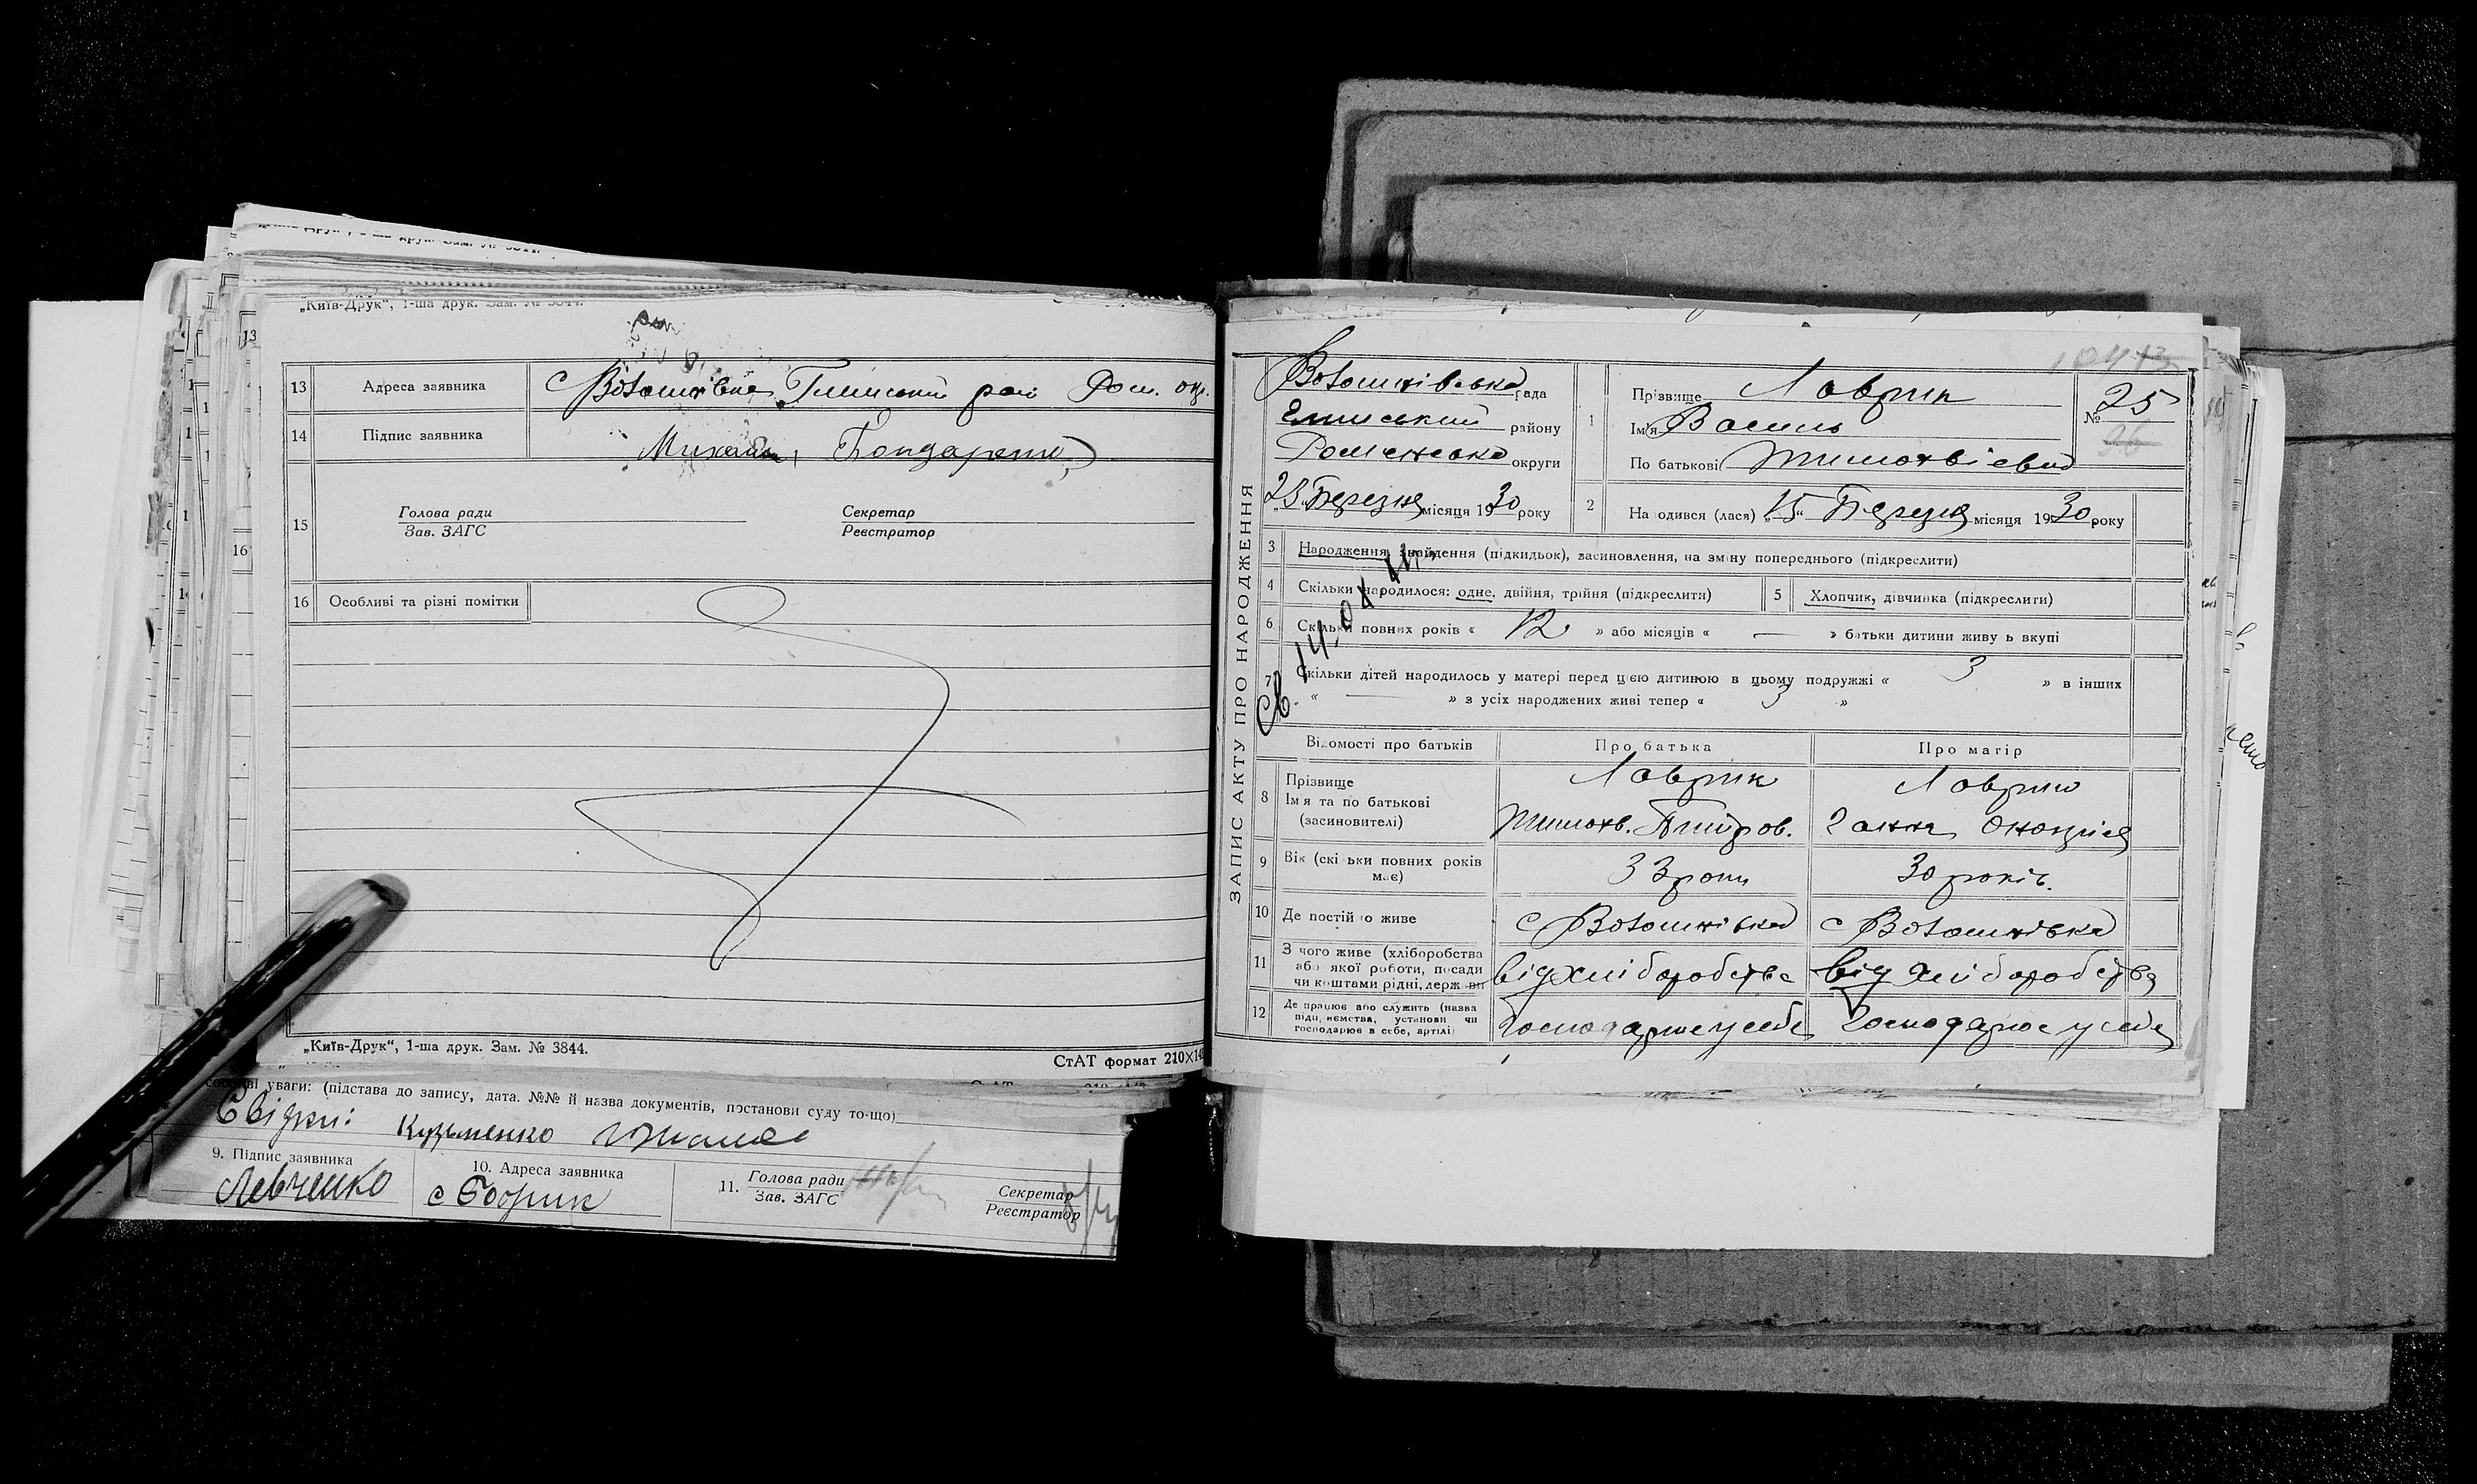 „Київ-Друк“, 1-ша друк. Зам. № 3844.
13 Адреса заявника с Волошнівка Глинський рай Ром. окр.
14 Підпис заявника Михайло Бондаренко
15 Голова ради Секретар
Зав. ЗАГС Реєстратор
16 Особливі та різні помітки
„Київ-Друк“, 1-ша друк. Зам. № 3844.
СтАТ формат 210×14
уваги: (підстава до запису, дата. №№ й назва документів, постанови суду то-що)
Свідки: Кузьменко
9. Підпис заявника 10. Адреса заявника 11. Голова ради Секретар
Зав. ЗАГС Реєстратор
Левченко с Бобрик
ЗАПИС АКТУ ПРО НАРОДЖЕННЯ
Волошнівська рада
Глинський району
Роменська округи
25 Березня місяця 1930 року
1 Прізвище Лаврик
Ім'я Василь
По батькові Тимохвієвич
№ 25
2 На одився (лася) „15“ Березня місяця 1930 року
3 Народження, знайдення (підкидьок), засиновлення, на зміну попереднього (підкреслити)
4 Скільки народилося: одне, двійня, трійня (підкреслити) 5 Хлопчик, дівчинка (підкреслити)
6 Скільки повних років « 12 » або місяців « — » батьки дитини живу ь вкупі
7 Скільки дітей народилось у матері перед цією дитиною в цьому подружжі « 3 » в інших
« — » з усіх народжених живі тепер « 3 »
Відомості про батьків Про батька Про матір
8 Прізвище Лаврик Лаврик
Ім'я та по батькові
(засиновителі) Тимохв. Дмитров. Ганна
9 Вік (скі ьки повних років має) 33 роки 30 років.
10 Де постій о живе с Волошнівка с Волошнівка
11 З чого живе (хліборобства
або якої роботи, посади
чи коштами рідні, держ ви від хліборобства від хліборобства
12 Де працює або служить (назва
підприємства, установи чи
господарює в себе, артілі) Господарює у себе Господарює у себе